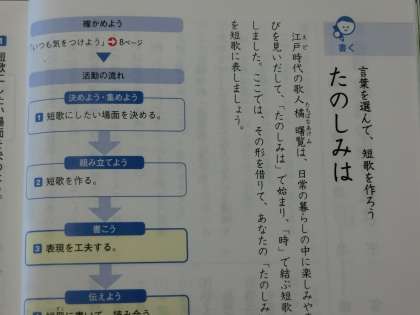 書く
言葉を選んで、短歌を作ろう
たのしみは
江戸時代の歌人橘曙覧は、日常の暮らしの中に楽しみや
びを見いだして、「たのしみは」で始まり、「時」で結ぶ短歌
しました。ここでは、その形を借りて、あなたの「たのしみ
を短歌に表しましょう。
確かめよう
「いつも気をつけよう」 8ページ
活動の流れ
決めよう・集めよう
1 短歌にしたい場面を決める。
組み立てよう
2 短歌を作る。
書こう
3 表現を工夫する。
伝えよう
1 短歌にしたい場面